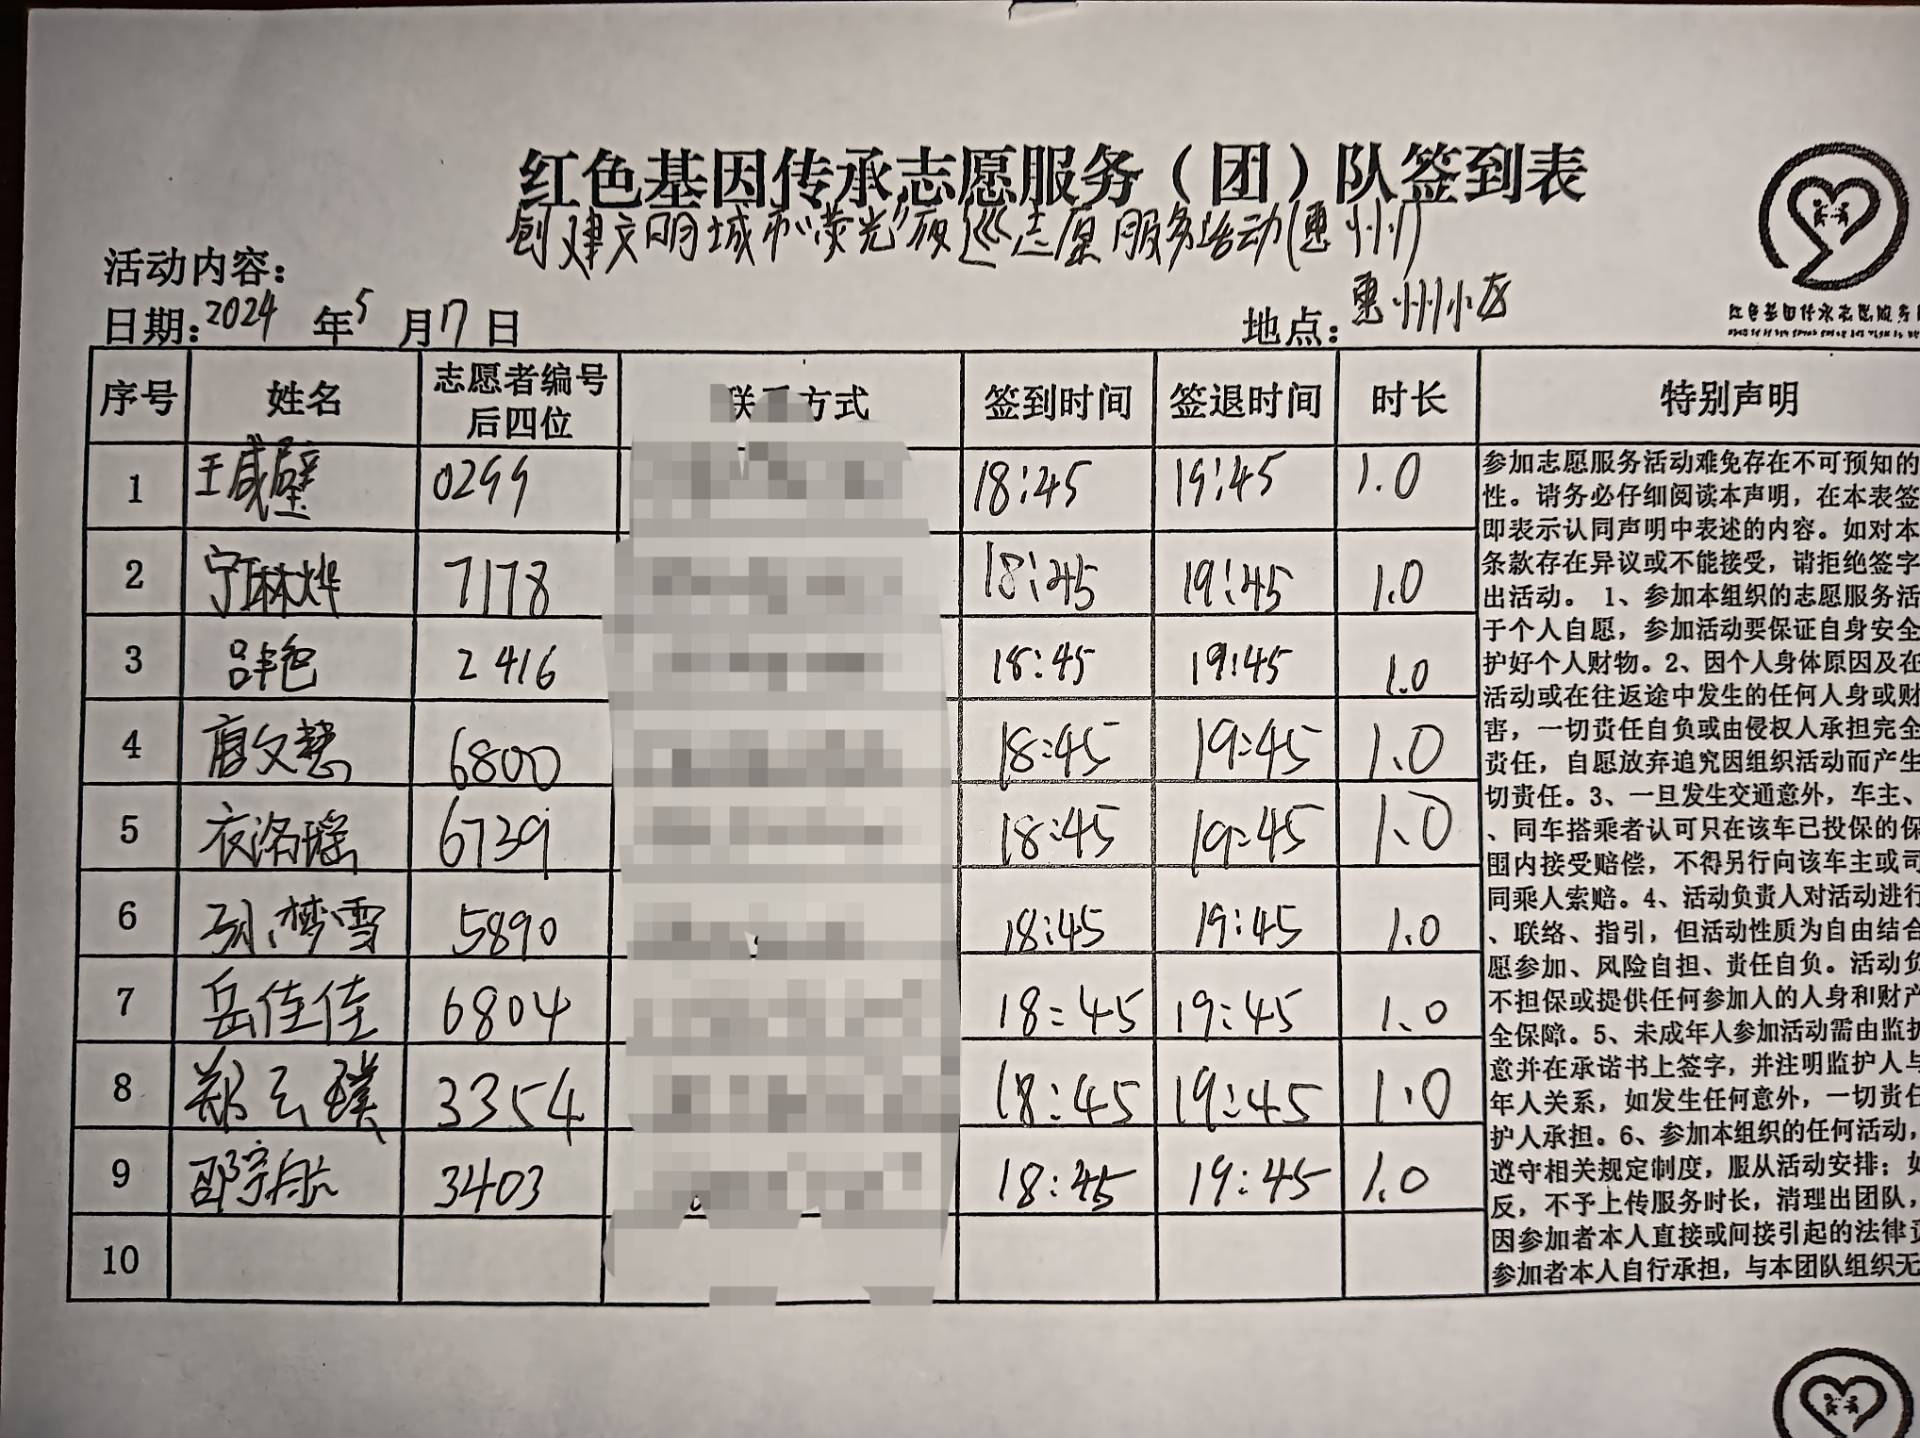 红色基因传承志愿服务（团）队签到表
活动内容：创建文明城市“荧光”夜巡志愿服务活动（惠州）
日期：2024年5月17日 地点：惠州小区
红色基因传承志愿服务
序号 姓名 志愿者编号后四位 联系方式 签到时间 签退时间 时长 特别声明
1 王咸壁 0299 18:45 19:45 1.0
2 宁琳烨 7178 18:45 19:45 1.0
3 2416 18:45 19:45 1.0
4 唐文慧 6800 18:45 19:45 1.0
5 衣洛瑶 6739 18:45 19:45 1.0
6 孙梦雪 5890 18:45 19:45 1.0
7 岳佳佳 6804 18:45 19:45 1.0
8 郑云璞 3354 18:45 19:45 1.0
9 邵宗航 3403 18:45 19:45 1.0
10
参加志愿服务活动难免存在不可预知的
性。请务必仔细阅读本声明，在本表签
即表示认同声明中表述的内容。如对本
条款存在异议或不能接受，请拒绝签字
出活动。1、参加本组织的志愿服务活
于个人自愿，参加活动要保证自身安全
护好个人财物。2、因个人身体原因及在
活动或在往返途中发生的任何人身或财
害，一切责任自负或由侵权人承担完全
责任，自愿放弃追究因组织活动而产生
切责任。3、一旦发生交通意外，车主、
、同车搭乘者认可只在该车已投保的保
围内接受赔偿，不得另行向该车主或司
同乘人索赔。4、活动负责人对活动进行
、联络、指引，但活动性质为自由结合
愿参加、风险自担、责任自负。活动负
不担保或提供任何参加人的人身和财产
全保障。5、未成年人参加活动需由监护
意并在承诺书上签字，并注明监护人与
年人关系，如发生任何意外，一切责任
护人承担。6、参加本组织的任何活动，
遵守相关规定制度，服从活动安排；如
反，不予上传服务时长，清理出团队，
因参加者本人直接或间接引起的法律责
参加者本人自行承担，与本团队组织无